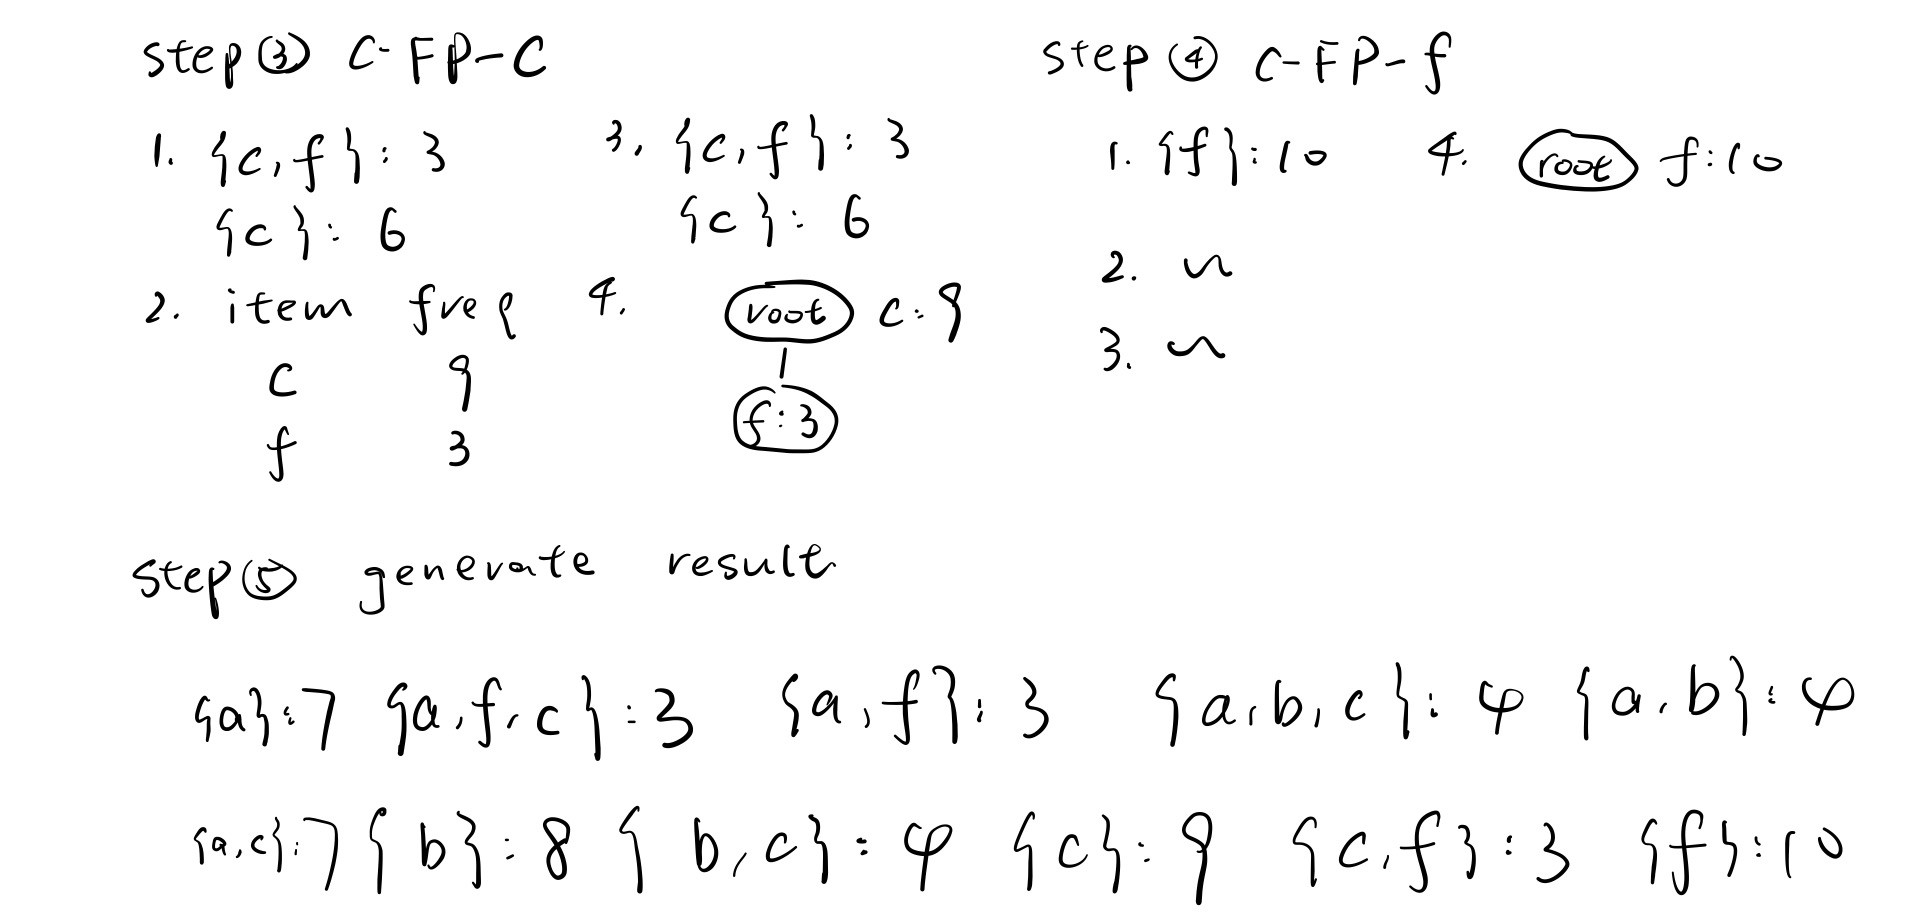 step ③ C-FP-C
1. {c,f}: 3
{c}: 6
2. item freq
c 9
f 3
3. {c,f}: 3
{c}: 6
4. root c:9
f:3
step ④ C-FP-f
1. {f}:10
4. root f:10
2. ~
3. ~
step ⑤ generate result
{a}:7 {a,f,c}:3 {a,f}:3 {a,b,c}:4 {a,b}:4
{a,c}:7 {b}:8 {b,c}:4 {c}:9 {c,f}:3 {f}:10